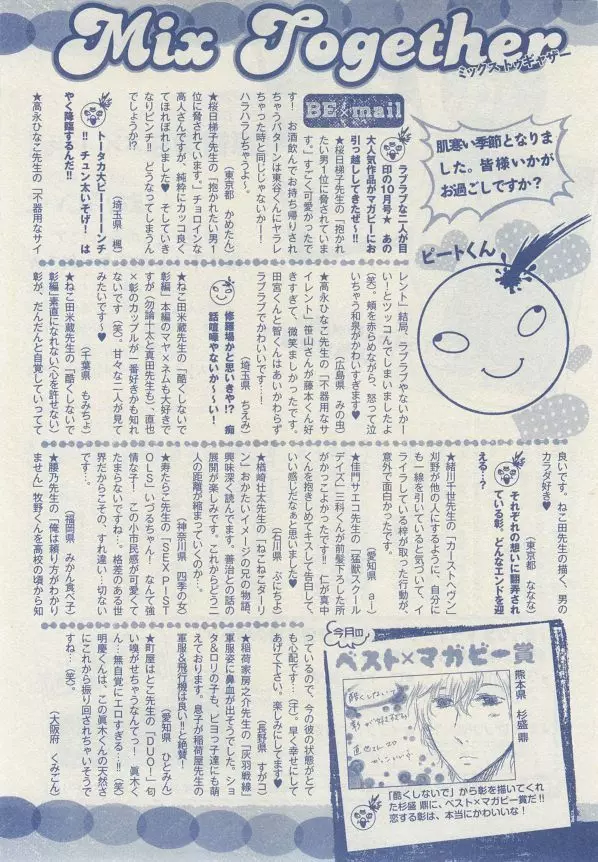 Mix Together
ミックストゥギャザー
肌寒い季節となりま
した。皆様いかが
お過ごしですか？
ビートくん
BE×mail
ラブラブな二人が目
印の10月号★ あの
大人気作品がマガビーにお
引っ越ししてきたぜ〜!!
★桜日梯子先生の「抱かれ
たい男1位に脅されていま
す。」すごく可愛かったで
す！ お酒飲んでお持ち帰りされ
ちゃうパターンは東谷くんにヤラレ
ちゃった時と同じじゃないかー！
ハラハラしちゃうよ〜。
（東京都 かめたん）
★桜日梯子先生の「抱かれたい男1
位に脅されています。」チョコインな
高人さんですが、純粋にカッコ良く
てほれぼれしました♥ そしていき
なりピンチ!! どうなってしまうん
でしょうか!?
（埼玉県 楓）
トータカ大ピーーーンチ
!! チュン太いそげ！ は
やく降臨するんだ!!
★高永ひなこ先生の「不器用なサイ
レント」結局、ラブラブやないかー
い！とツッコんでしまいましたよ
（笑）。頬を赤らめながら、怒って泣
いちゃう和泉がかわいすぎます♥
（広島県 みの虫）
★高永ひなこ先生の「不器用なサ
イレント」笹山さんが藤本くん好
きすぎて、微笑ましかったです。
田宮くんと智くんはあいかわらず
ラブラブでかわいいです…！
（埼玉県 ちえみ）
修羅場かと思いきや!? 痴
話喧嘩やないか〜〜い！
★ねこ田米蔵先生の「酷くしないで
彰編」本編のマヤ×ネムも大好きで
すが（勿論十太と真田先生も）、直也
×彰のカップルが一番好きかも知れ
ないです（笑）。甘々な二人が見て
みたいです〜♥
（千葉県 もみちょ）
★ねこ田米蔵先生の「酷くしないで
彰編」素直になれない（心を許せない）
彰が、だんだんと自覚していってて
良いです。ねこ田先生の描く、男の
カラダ好き♥
（東京都 ななな）
それぞれの想いに翻弄され
ている彰、どんなエンドを迎
える…？
★緒川千世先生の「カーストヘヴン」
刈野が他の人にするように、自分に
も一線を引いていると気づいて、イ
ライラしている梓が取った行動が、
意外で面白かったです。
（愛知県 aー）
★佳門サエコ先生の「猛獣スクール
デイズ」三科くんが前髪下ろした所
がかっこよかったです!! 仁が真中
くんを抱きしめてキスして告白して、
いい感じだなぁと思いました♥
（石川県 ぷにちょ）
★楢崎壮太先生の「ねこねこダーリ
ン」おかたいイメージの兄の物語、
興味深く読んでます。善治との話の
展開が楽しみです。これからどう二
人の距離が縮まっていくのか…。
（神奈川県 四季の女）
★寿たらこ先生の「SEX PIST
OLS」いづるちゃん！ なんて強
情な子！ この小市民感が可愛くて
たまらないですね…。格差のある世
界だからこその、すれ違い…切ない
です…。
（福岡県 みかん食べ子）
★腰乃先生の「俺は頼り方がわかり
ません」牧野くんを高校の頃から知
っているので、今の彼の状態がとて
も心配です…（汗）。早く幸せにして
あげて下さい。楽しみにしてます♥
（長野県 すがコ）
★稲荷家房之介先生の「灰羽戦線」
軍服姿に鼻血が出そうでした。ショ
タ＆ロリの子も、ピヨっ子達にも萌
えております。息子が稲荷屋先生の
軍服＆飛行機は良い!!と絶賛！
（愛知県 ひとみん）
★町屋はとこ先生の「DUO！」匂
い嗅がせちゃうなんてっ！ 眞木く
ん…無自覚にエロすぎる…!!（笑）
明慶くんは、この眞木くんの天然さ
にこれから振り回されちゃいそうで
すね…（笑）。
（大阪府 くみごん）
今月の
ベスト×マガビー賞
熊本県 杉盛 鼎
酷くしないで
「酷くしないで」から彰を描いてくれ
た杉盛 鼎に、ベスト×マガビー賞だ!!
恋する彰は、本当にかわいいな！